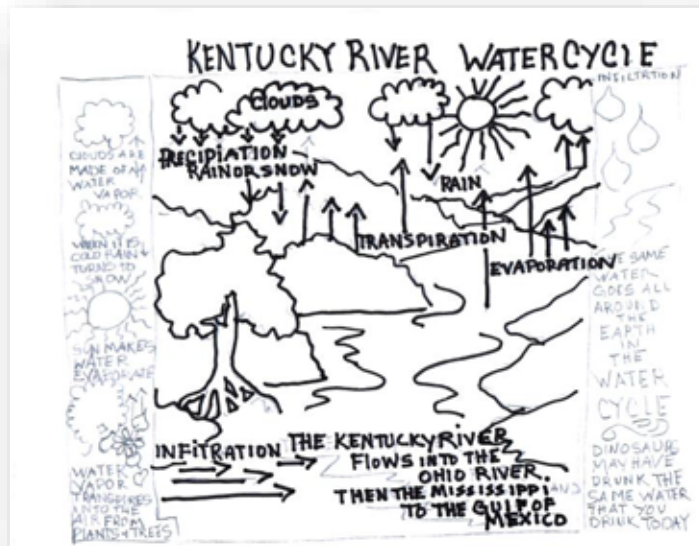 KENTUCKY RIVER WATER CYCLE
CLOUDS
PRECIPIATION
RAIN OR SNOW
RAIN
TRANSPIRATION
EVAPORATION
INFITRATION
THE KENTUCKY RIVER
FLOWS INTO THE
OHIO RIVER.
THEN THE MISSISSIPPI AND
TO THE GULF OF
MEXICO
CLOUDS ARE
MADE OF
WATER
VAPOR
WHEN IT IS
COLD RAIN
TURNS TO
SNOW
SUN MAKES
WATER
EVAPORATE
WATER
VAPOR
TRANSPIRES
INTO THE
AIR FROM
PLANTS & TREES
INFILTRTION
THE SAME
WATER
GOES ALL
AROUND
THE
EARTH
IN
THE
WATER
CYCLE
DINOSAURS
MAY HAVE
DRUNK THE
SAME WATER
THAT YOU
DRINK TODAY